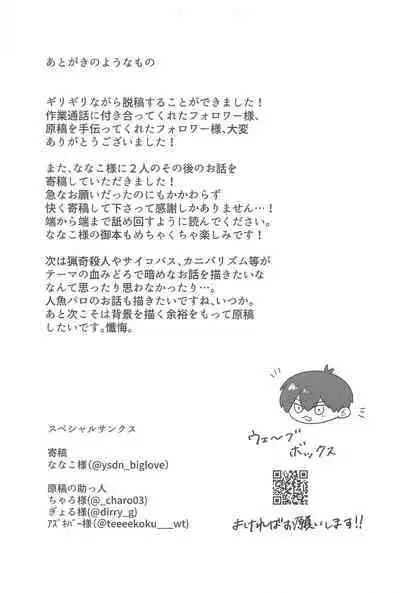 あとがきのようなもの
ギリギリながら脱稿することができました！
作業通話に付き合ってくれたフォロワー様、
原稿を手伝ってくれたフォロワー様、大変
ありがとうございました！
また、ななこ様に２人のその後のお話を
寄稿していただきました！
急なお願いだったのにもかかわらず
快く寄稿して下さって感謝しかありません…！
端から端まで舐め回すように読んでください。
ななこ様の御本もめちゃくちゃ楽しみです！
次は猟奇殺人やサイコパス、カニバリズム等が
テーマの血みどろで暗めなお話を描きたいな
なんて思ったり思わなかったり…。
人魚パロのお話も描きたいですね、いつか。
あと次こそは背景を描く余裕をもって原稿
したいです。懺悔。
スペシャルサンクス
寄稿
ななこ様（@ysdn_biglove）
原稿の助っ人
ちゃろ様(@_charo03)
ぎょる様(@dirry_g)
ｱｽﾞｷﾊﾞｰ様(@teeeekoku___wt)
ウェ〜ブ
ボックス
よければお願いします!!